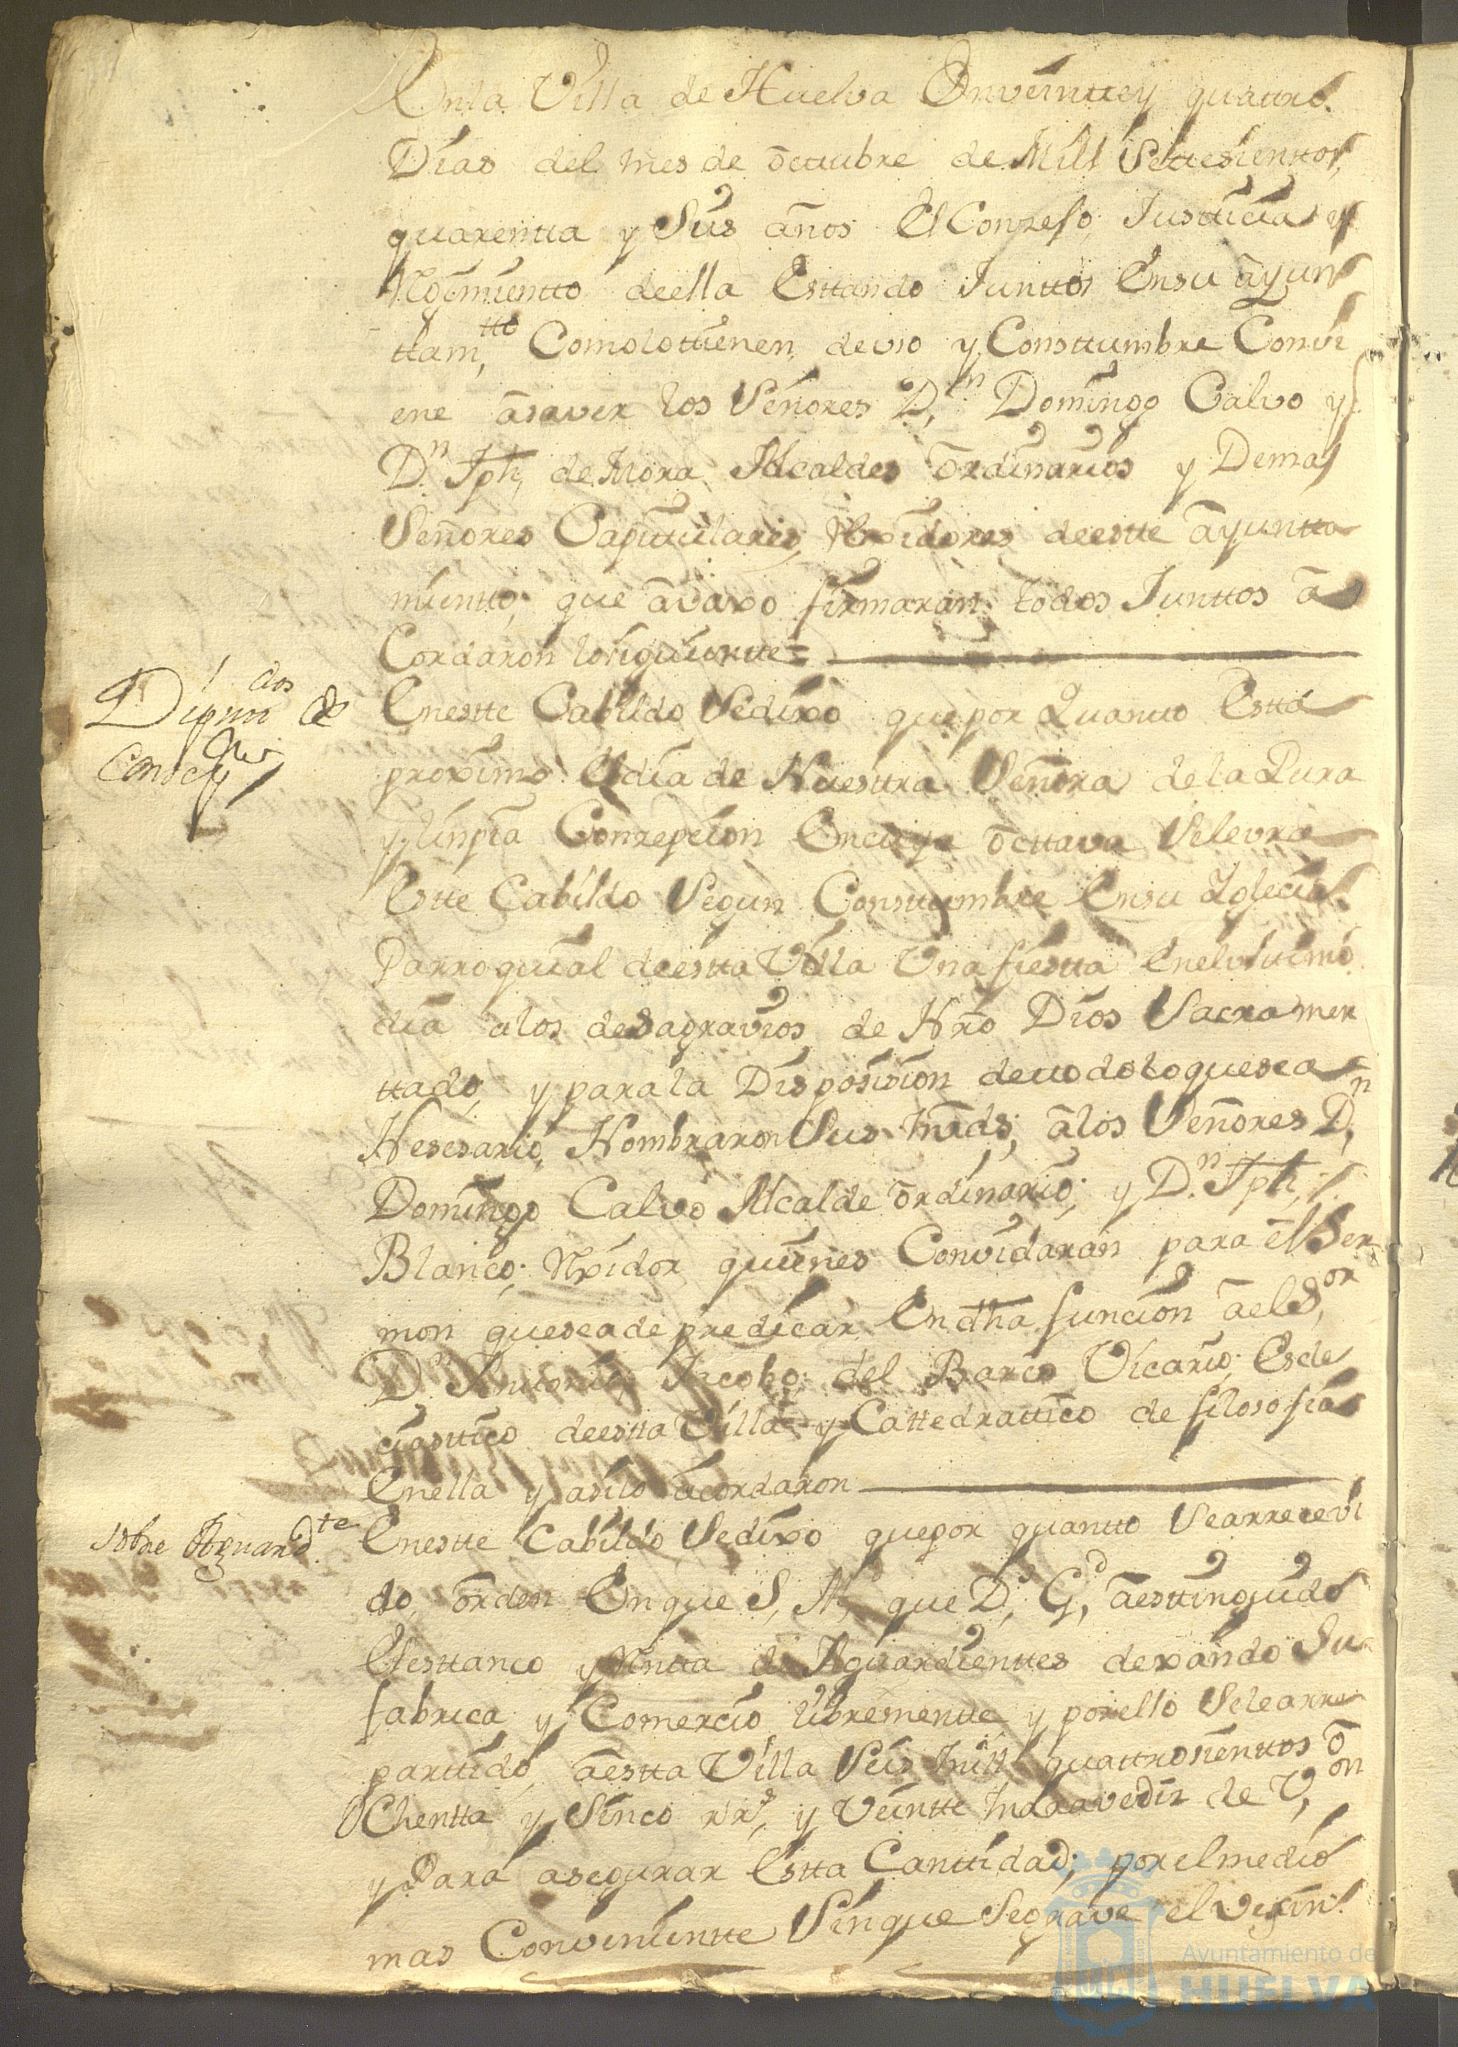 En la Villa de Huelva En veintte y quattro
Dias del mes de octtubre de Mill Settesienttos
quarentta y Seis años El Conzejo Justticia y
Reximientto de ella Esttando Junttos En su ayun
ttam.tto Como lo ttienen de vso y Costtumbre Convi
ene asaver los Señores D.n Domingo Calvo y
D.n Jph de Mora Alcaldes ordinarios y Demas
Señores Capittulares, Rexidores de estte ayuntta
mientto, que avaxo firmaran todos Junttos a
Cordaron lo siguientte =
Diputtados de
Concepz.on
En estte Cabildo Se dixo que por Quantto Estta
proximo El dia de Nuesttra Señora de la Pura
y Linpia Conzepcion En cuya octtava Selevra
Estte Cabildo Segun Costtumbre En su Iglecia
Parroquial de estta Villa Una fiestta En el vlttimo
dia a los desagravios de Nro Dios Sacramen
ttado, y para la Disposision de ttodo lo que sea
Nesesario, Nombraron Sus mrds, a los Señores D.n
Domingo Calvo Alcalde ordinario; y D.n Jph
Blanco; Rxidor quienes Convidaran para el Ser
mon que se a de predicar En dha funcion a el S.or
D.n Anttonio Jacobo del Barco Vicario Ecle
ciasttico de estta Villa y Cattedrattico de filosofia
En ella y asi lo acordaron
sobre Aguard.te
En estte Cabildo Se dixo que por quantto Se a rrecevi
do orden En que S, M, que D.s G.e a esttinguido
El esttanco y Rentta de Aguardienttes dexando Su
fabrica y Comercio librementte y por ello Se le a rre
parttido a estta Villa Seis mill quattrosienttos o
Chentta y Sinco rr.s y Veintte maravedis de V.on
y Para asegurar Estta Canttidad; por el medio
mas Convenientte Sin que Se grave el vesin
Ayuntamiento de
HUELVA